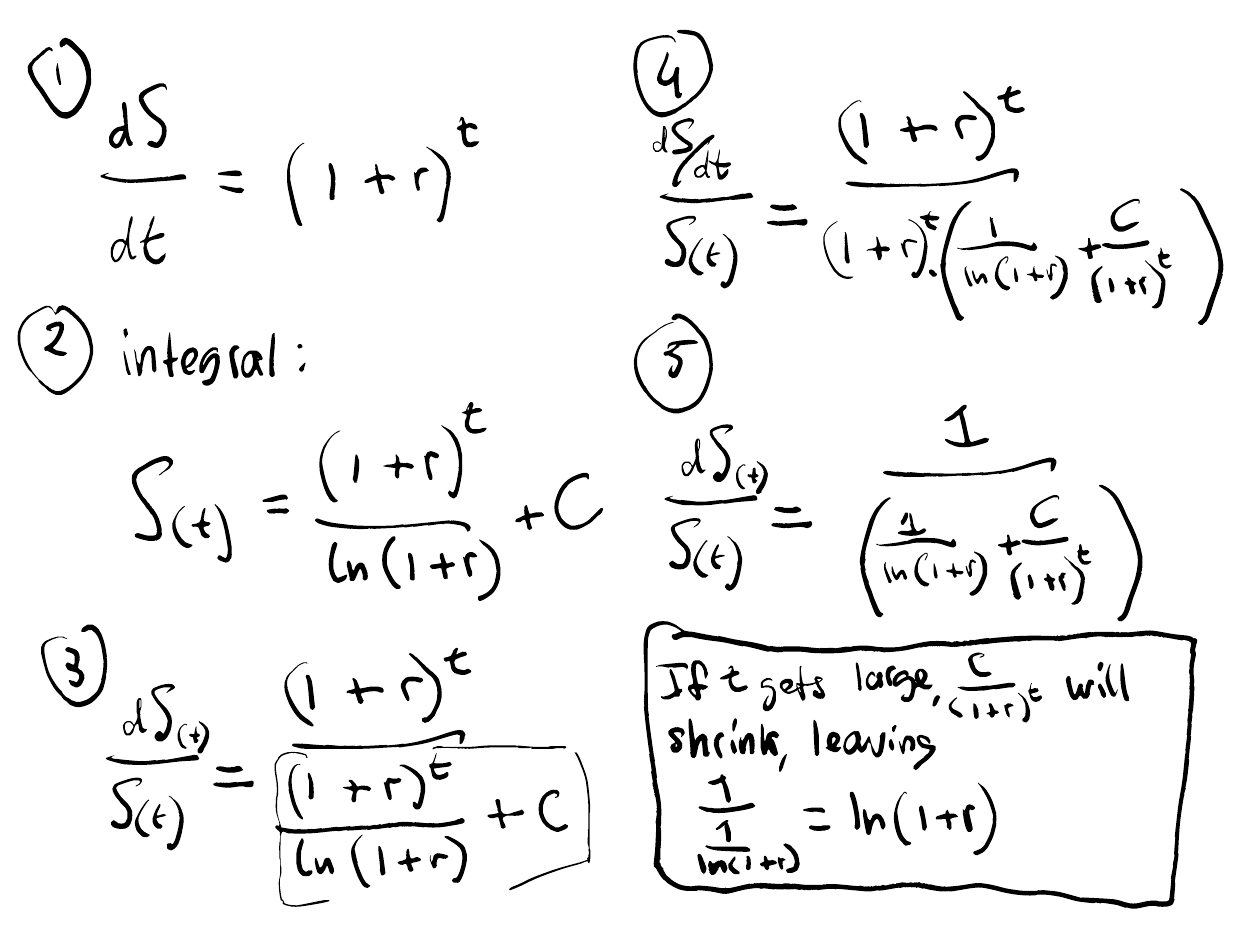 1
dS/dt = (1 + r)^t
2 integral:
S(t) = (1 + r)^t / ln(1 + r) + C
3
dS(t) / S(t) = (1 + r)^t / ((1 + r)^t / ln(1 + r) + C)
4
(dS/dt) / S(t) = (1 + r)^t / ((1 + r)^t · (1 / ln(1 + r) + C / (1 + r)^t))
5
dS(t) / S(t) = 1 / (1 / ln(1 + r) + C / (1 + r)^t)
If t gets large, C / (1+r)^t will
shrink, leaving
1 / (1 / ln(1 + r)) = ln(1 + r)